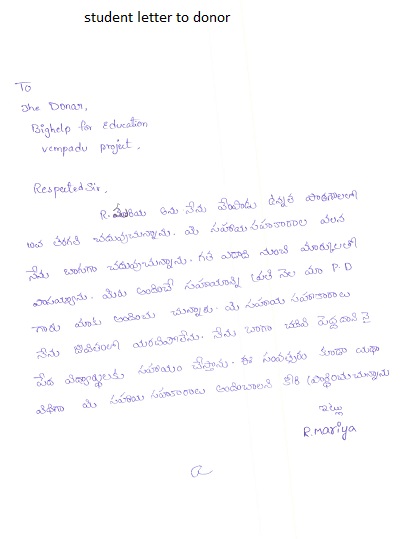 student letter to donor
To
The Donar,
Bighelp for Education
vempadu project,
Respected Sir,
R. మరియ అను నేను వేంపాడు ఉన్నత పాఠశాలలో
10వ తరగతి చదువుచున్నాను. మీ సహాయ సహకారాల వలన
నేను బాగుగా చదువుచున్నాను. గత ఏడాది నుంచి మార్కులలో
మీరు అందించే సహాయాన్ని ప్రతి నెల మా P.D
గారు మాకు అందించు చున్నారు. మీ సహాయ సహకారాలు
నేను జీవితంలో మరచిపోలేను. నేను బాగా చదివి పెద్దదాని నై
పేద విద్యార్థులకు సహాయం చేస్తాను. ఈ సంవత్సరం కూడా యథా
విధిగా మీ సహాయ సహకారాలు అందించాలని కోరి ప్రార్థించుచున్నాను
ఇట్లు
R. Mariya